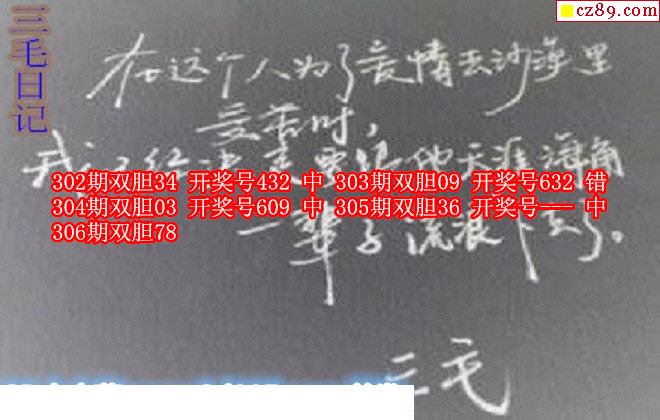 cz89.com
三毛日记
在这个人为了爱情去沙漠里
受苦时,
我
天涯海角
302期双胆34 开奖号432 中 303期双胆09 开奖号632 错
304期双胆03 开奖号609 中 305期双胆36 开奖号--- 中
306期双胆78
一辈子流浪下去了。
三毛